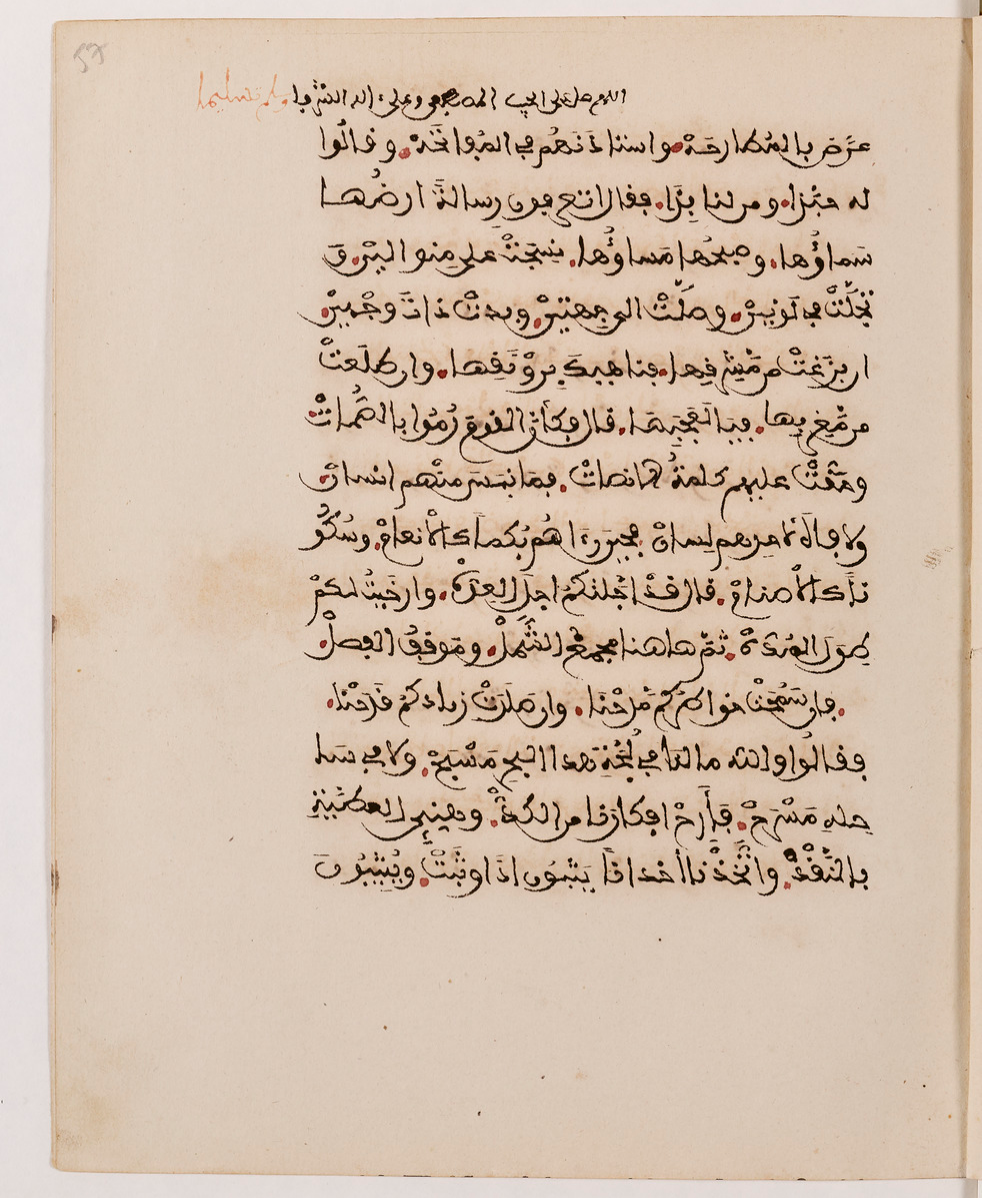 اللهم صل على الحبيب المصطفى وعلى اله الشرفا وسلم تسليما
عَرَّضَ بالمُطارحَةْ واستاذنَهُم في المُفاتَحَةْ وقالُوا
له حبّذا ومن لنا بِذَا فقال اتعرفون رِسالَةً ارضُها
سَماؤُها وصبحُها مَساؤُها نسِجَتْ على مِنوالَيْنْ وَ
تجَلَّتْ في لَونَيْنْ وصَلَّتْ الى جهتَيْنْ وبدتْ ذاتَ وجْهَيْنْ
ان بزَغتْ من مَشْرِقِها فناهيكَ برَوْنَقِها وان طلَعَتْ
من مَغْرِبِها فيا لَعَجَبِها قال فكأنّ القومَ رُمُوا بالصُّماتْ
وحقّتْ عليهم كلمةُ الانصاتْ فما نبَسَ منْهم انسانْ
ولا فاهَ لاحدِهم لِسانْ فحِينَ رَءَاهُم بُكماً كالأنعامْ وسُكُو
تاً كالأصنامْ قال قدْ أجّلتكُم اجلَ العِدّةْ وارخَيتُ لكمْ
طِوَلَ المُدّةْ ثمّ هاهنا مجمعُ الشَّملْ ومَوقِفُ الفصلْ
فان سَمَحَتْ خواطرُكم مَدَحْنا وان صَلَدَتْ زنادكمْ قدَحْنا
فقالُوا والله ما لنا في لُجّةِ هذا البحرِ مَسْبَحْ ولا في سا
حلِهِ مَسْرَحْ فأَرِحْ افكارَنا من الكدّْ وهَنِئِ العطيّةَ
بالنّقْدْ واتّخذْنا أخداناً يَثِبُون اذا وثَبْتْ ويُثِيبُونَ